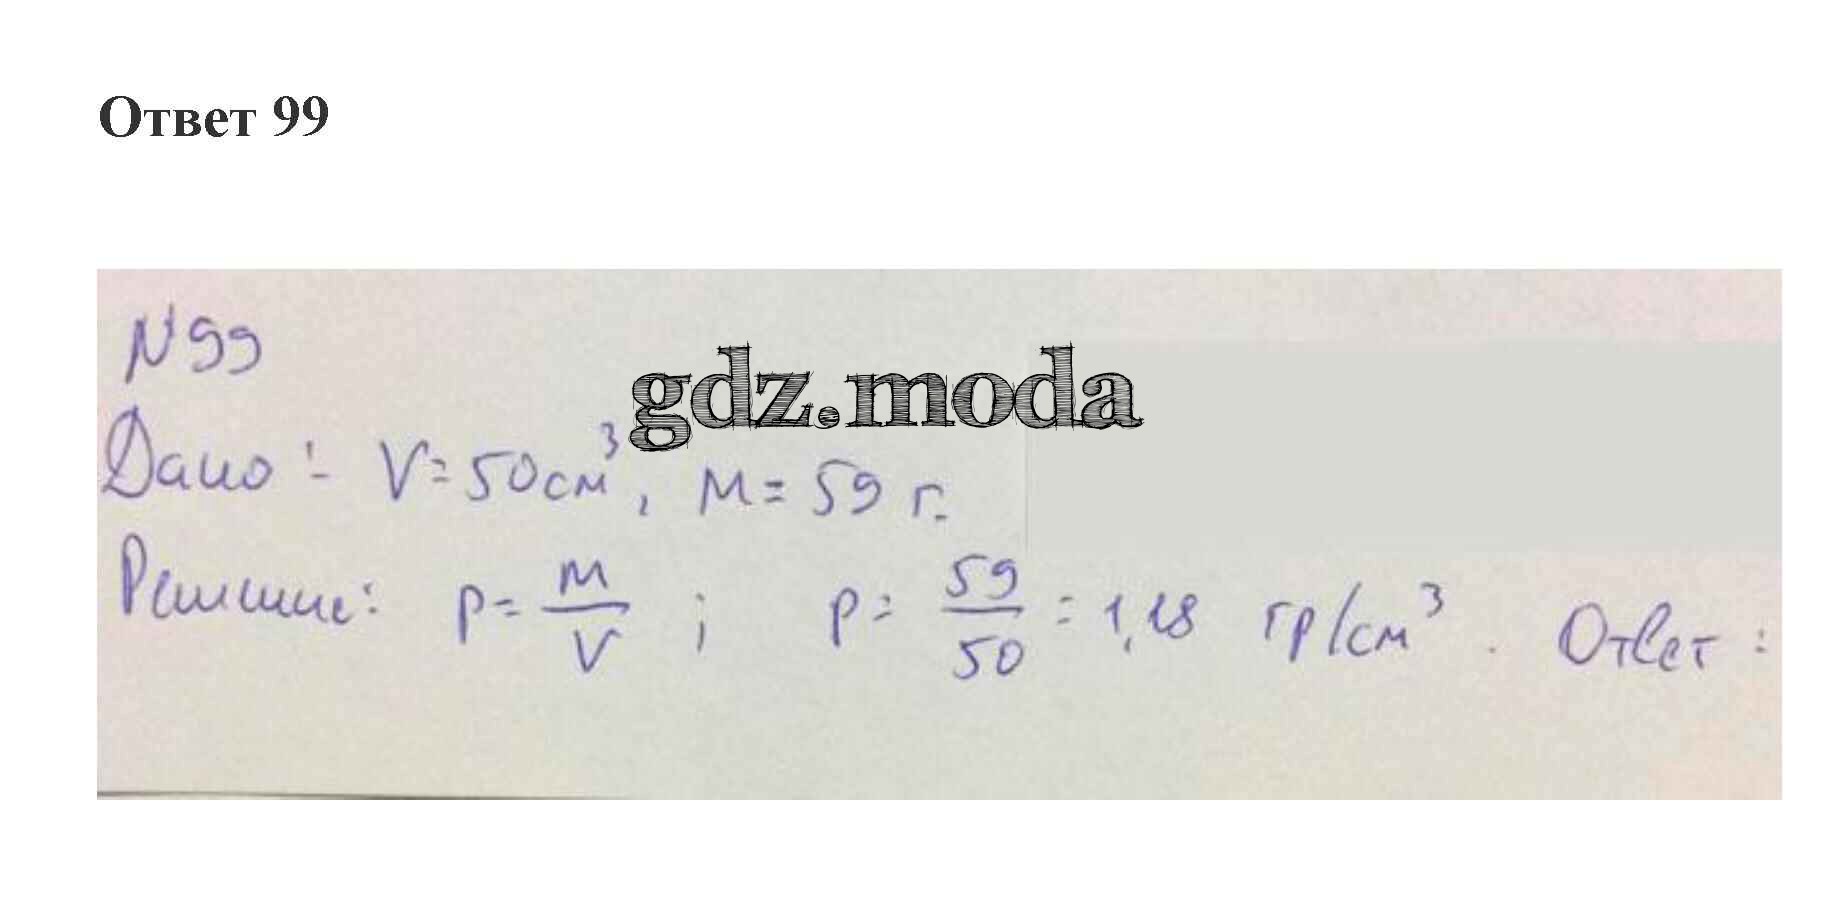 Ответ 99
N 99
gdz.moda
Дано: V = 50 см³, м = 59 г.
Решение: p = м/V ; p = 59/50 = 1,18 гр/см³. Ответ: